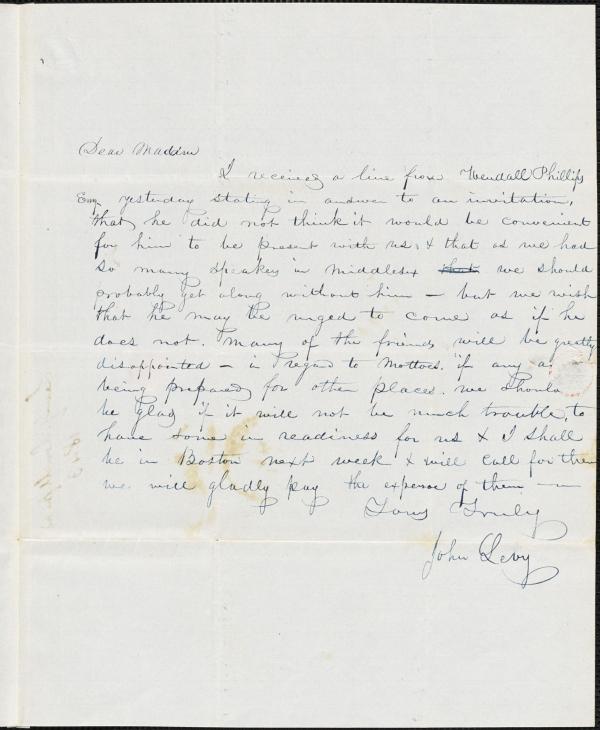 Dear Maddim
I received a line from Wendall Phillips
Esq yesterday stating in answer to an invitation,
that he did not think it would be convenient
for him to be present with us, & that as we had
so many speakers in Middlesex that we should
probably get along without him — but we wish
that he may be urged to come as if he
does not. many of the friends will be greatly
disappointed — in regard to Mottoes. if any a
being prepared for other places. we should
be glad if it will not be much trouble, to
have some in readiness for us & I shall
be in Boston next week & will call for them
we will gladly pay the expense of them —
Yours Truly
John Levy